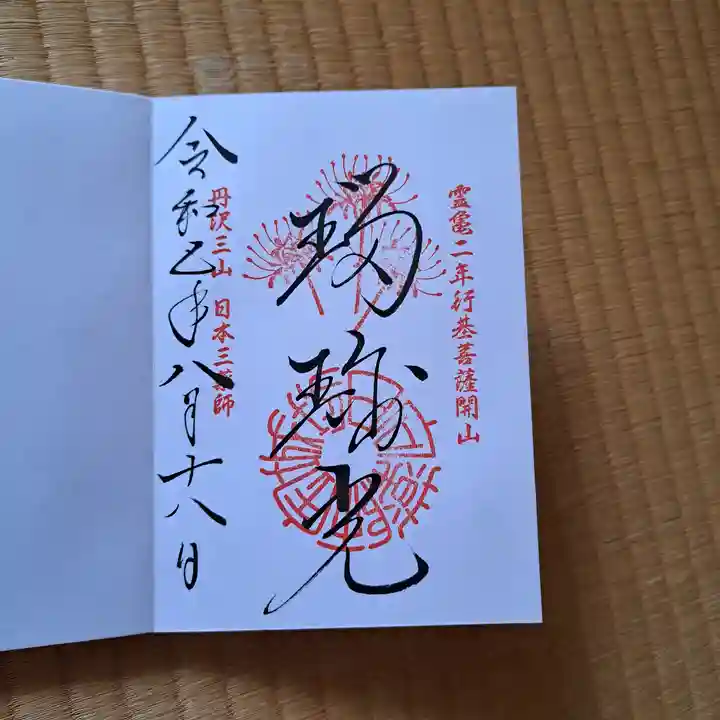 霊亀二年行基菩薩開山
瑠璃光
丹沢三山 日本三薬師
令和七年八月十八日